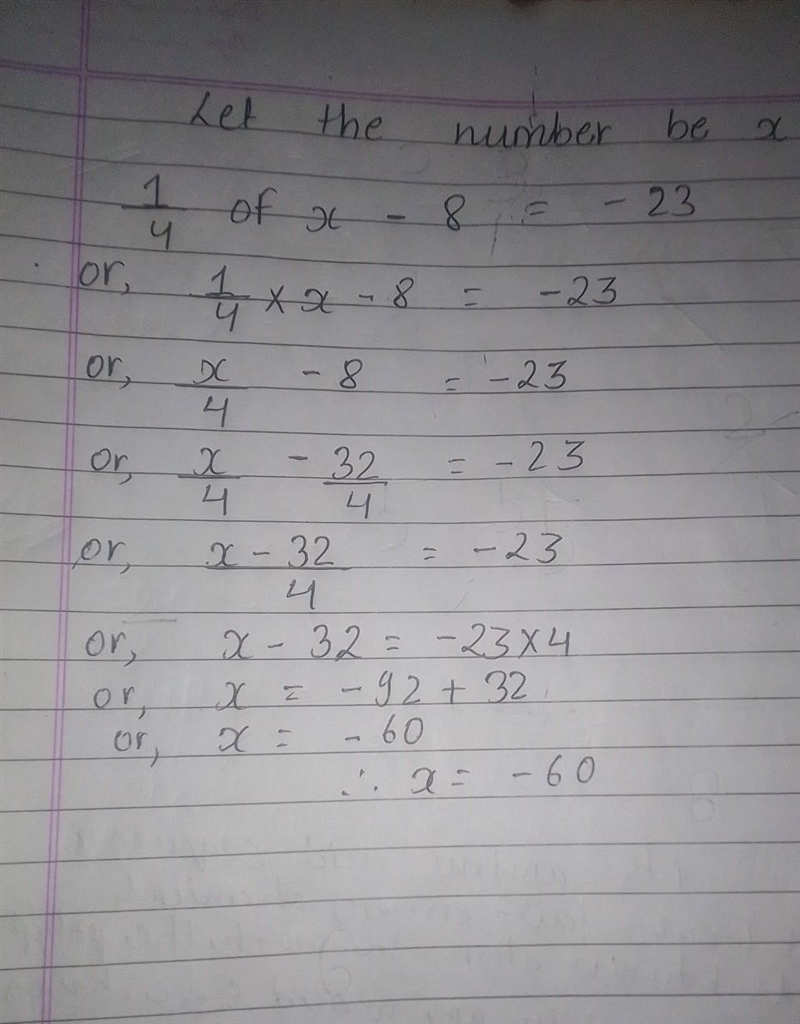 Let the number be x
1/4 of x - 8 = - 23
or, 1/4 × x - 8 = -23
or, x/4 - 8 = -23
or, x/4 - 32/4 = -23
or, x - 32/4 = -23
or, x - 32 = -23×4
or, x = -92 + 32
or, x = - 60
∴ x = -60